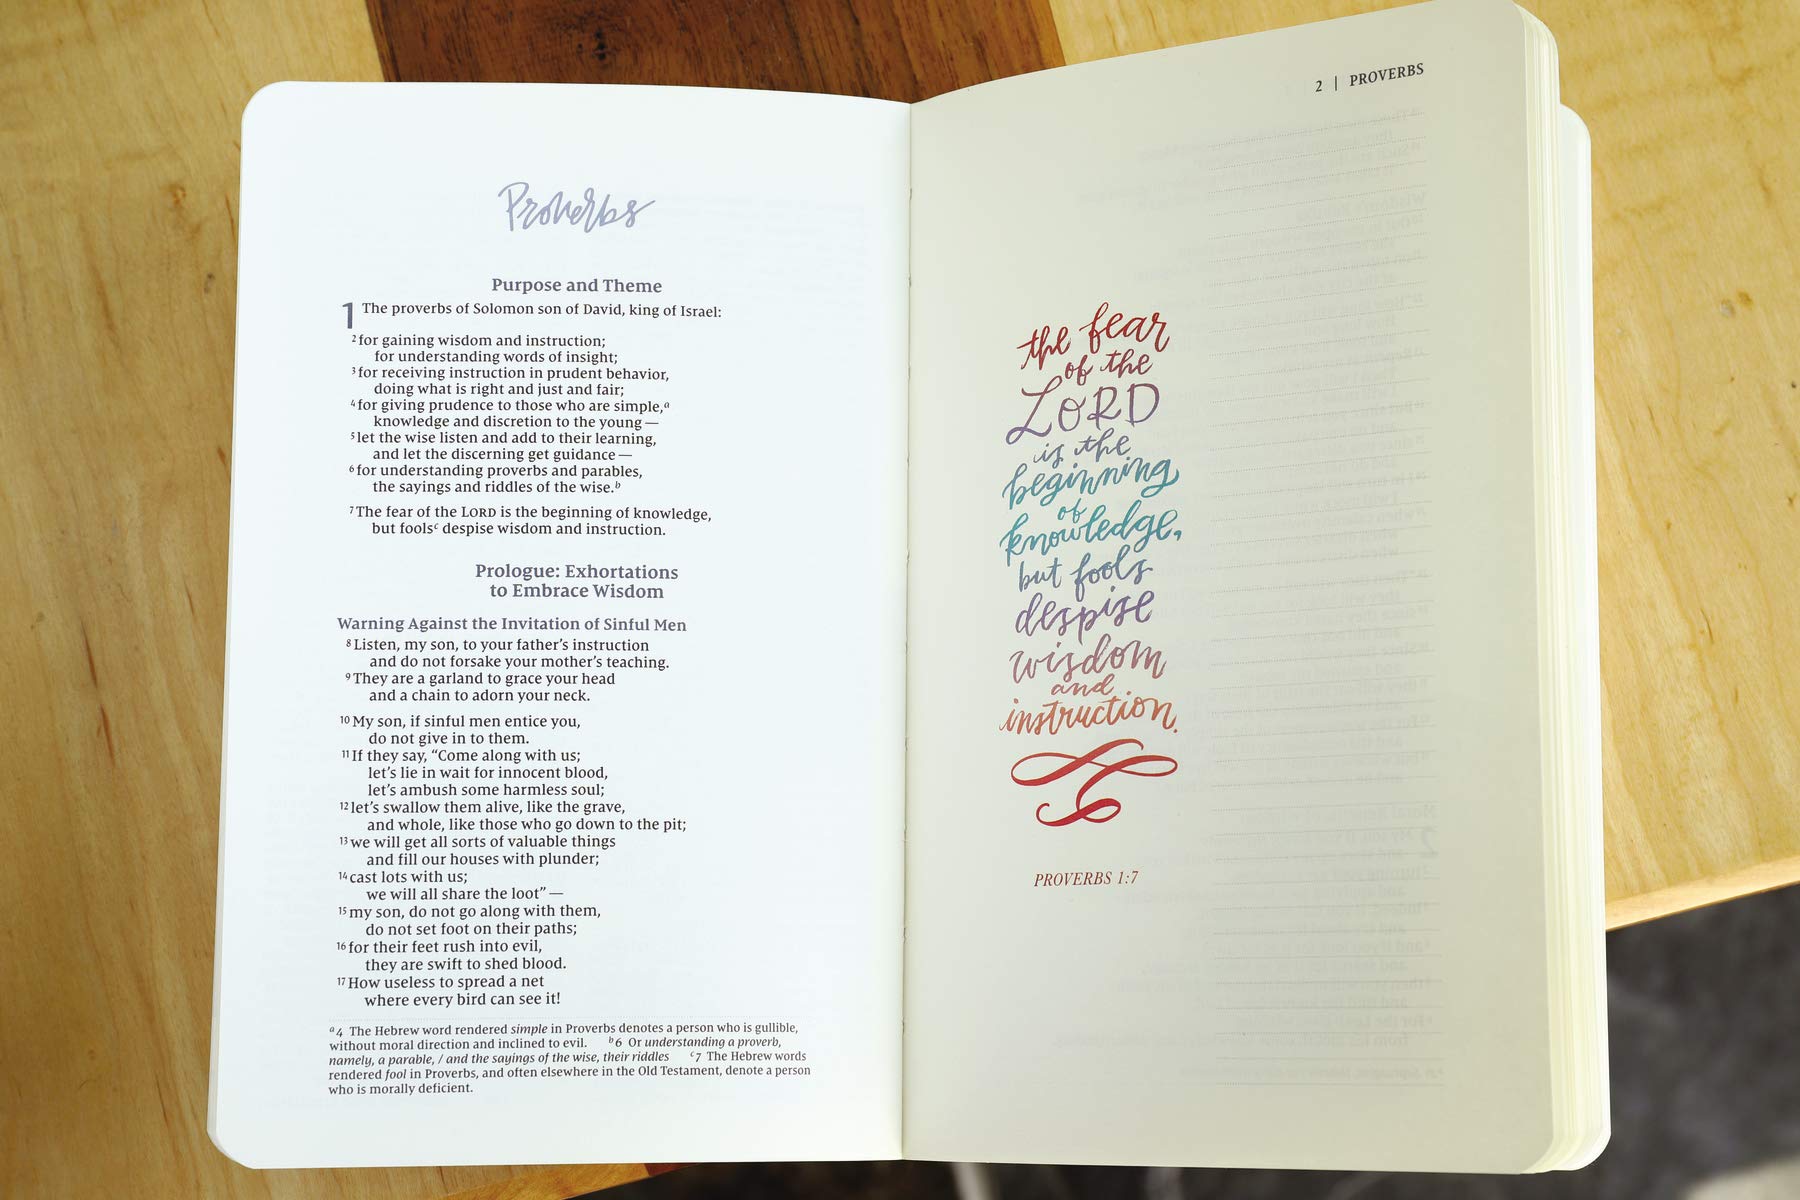 Proverbs
Purpose and Theme
1 The proverbs of Solomon son of David, king of Israel:
2 for gaining wisdom and instruction;
for understanding words of insight;
3 for receiving instruction in prudent behavior,
doing what is right and just and fair;
4 for giving prudence to those who are simple,a
knowledge and discretion to the young—
5 let the wise listen and add to their learning,
and let the discerning get guidance—
6 for understanding proverbs and parables,
the sayings and riddles of the wise.b
7 The fear of the LORD is the beginning of knowledge,
but foolsc despise wisdom and instruction.
Prologue: Exhortations
to Embrace Wisdom
Warning Against the Invitation of Sinful Men
8 Listen, my son, to your father’s instruction
and do not forsake your mother’s teaching.
9 They are a garland to grace your head
and a chain to adorn your neck.
10 My son, if sinful men entice you,
do not give in to them.
11 If they say, “Come along with us;
let’s lie in wait for innocent blood,
let’s ambush some harmless soul;
12 let’s swallow them alive, like the grave,
and whole, like those who go down to the pit;
13 we will get all sorts of valuable things
and fill our houses with plunder;
14 cast lots with us;
we will all share the loot”—
15 my son, do not go along with them,
do not set foot on their paths;
16 for their feet rush into evil,
they are swift to shed blood.
17 How useless to spread a net
where every bird can see it!
a 4 The Hebrew word rendered simple in Proverbs denotes a person who is gullible,
without moral direction and inclined to evil. b 6 Or understanding a proverb,
namely, a parable, / and the sayings of the wise, their riddles c 7 The Hebrew words
rendered fool in Proverbs, and often elsewhere in the Old Testament, denote a person
who is morally deficient.
2 | PROVERBS
the fear
of the
LORD
is the
beginning
of
knowledge,
but fools
despise
wisdom
and
instruction.
PROVERBS 1:7